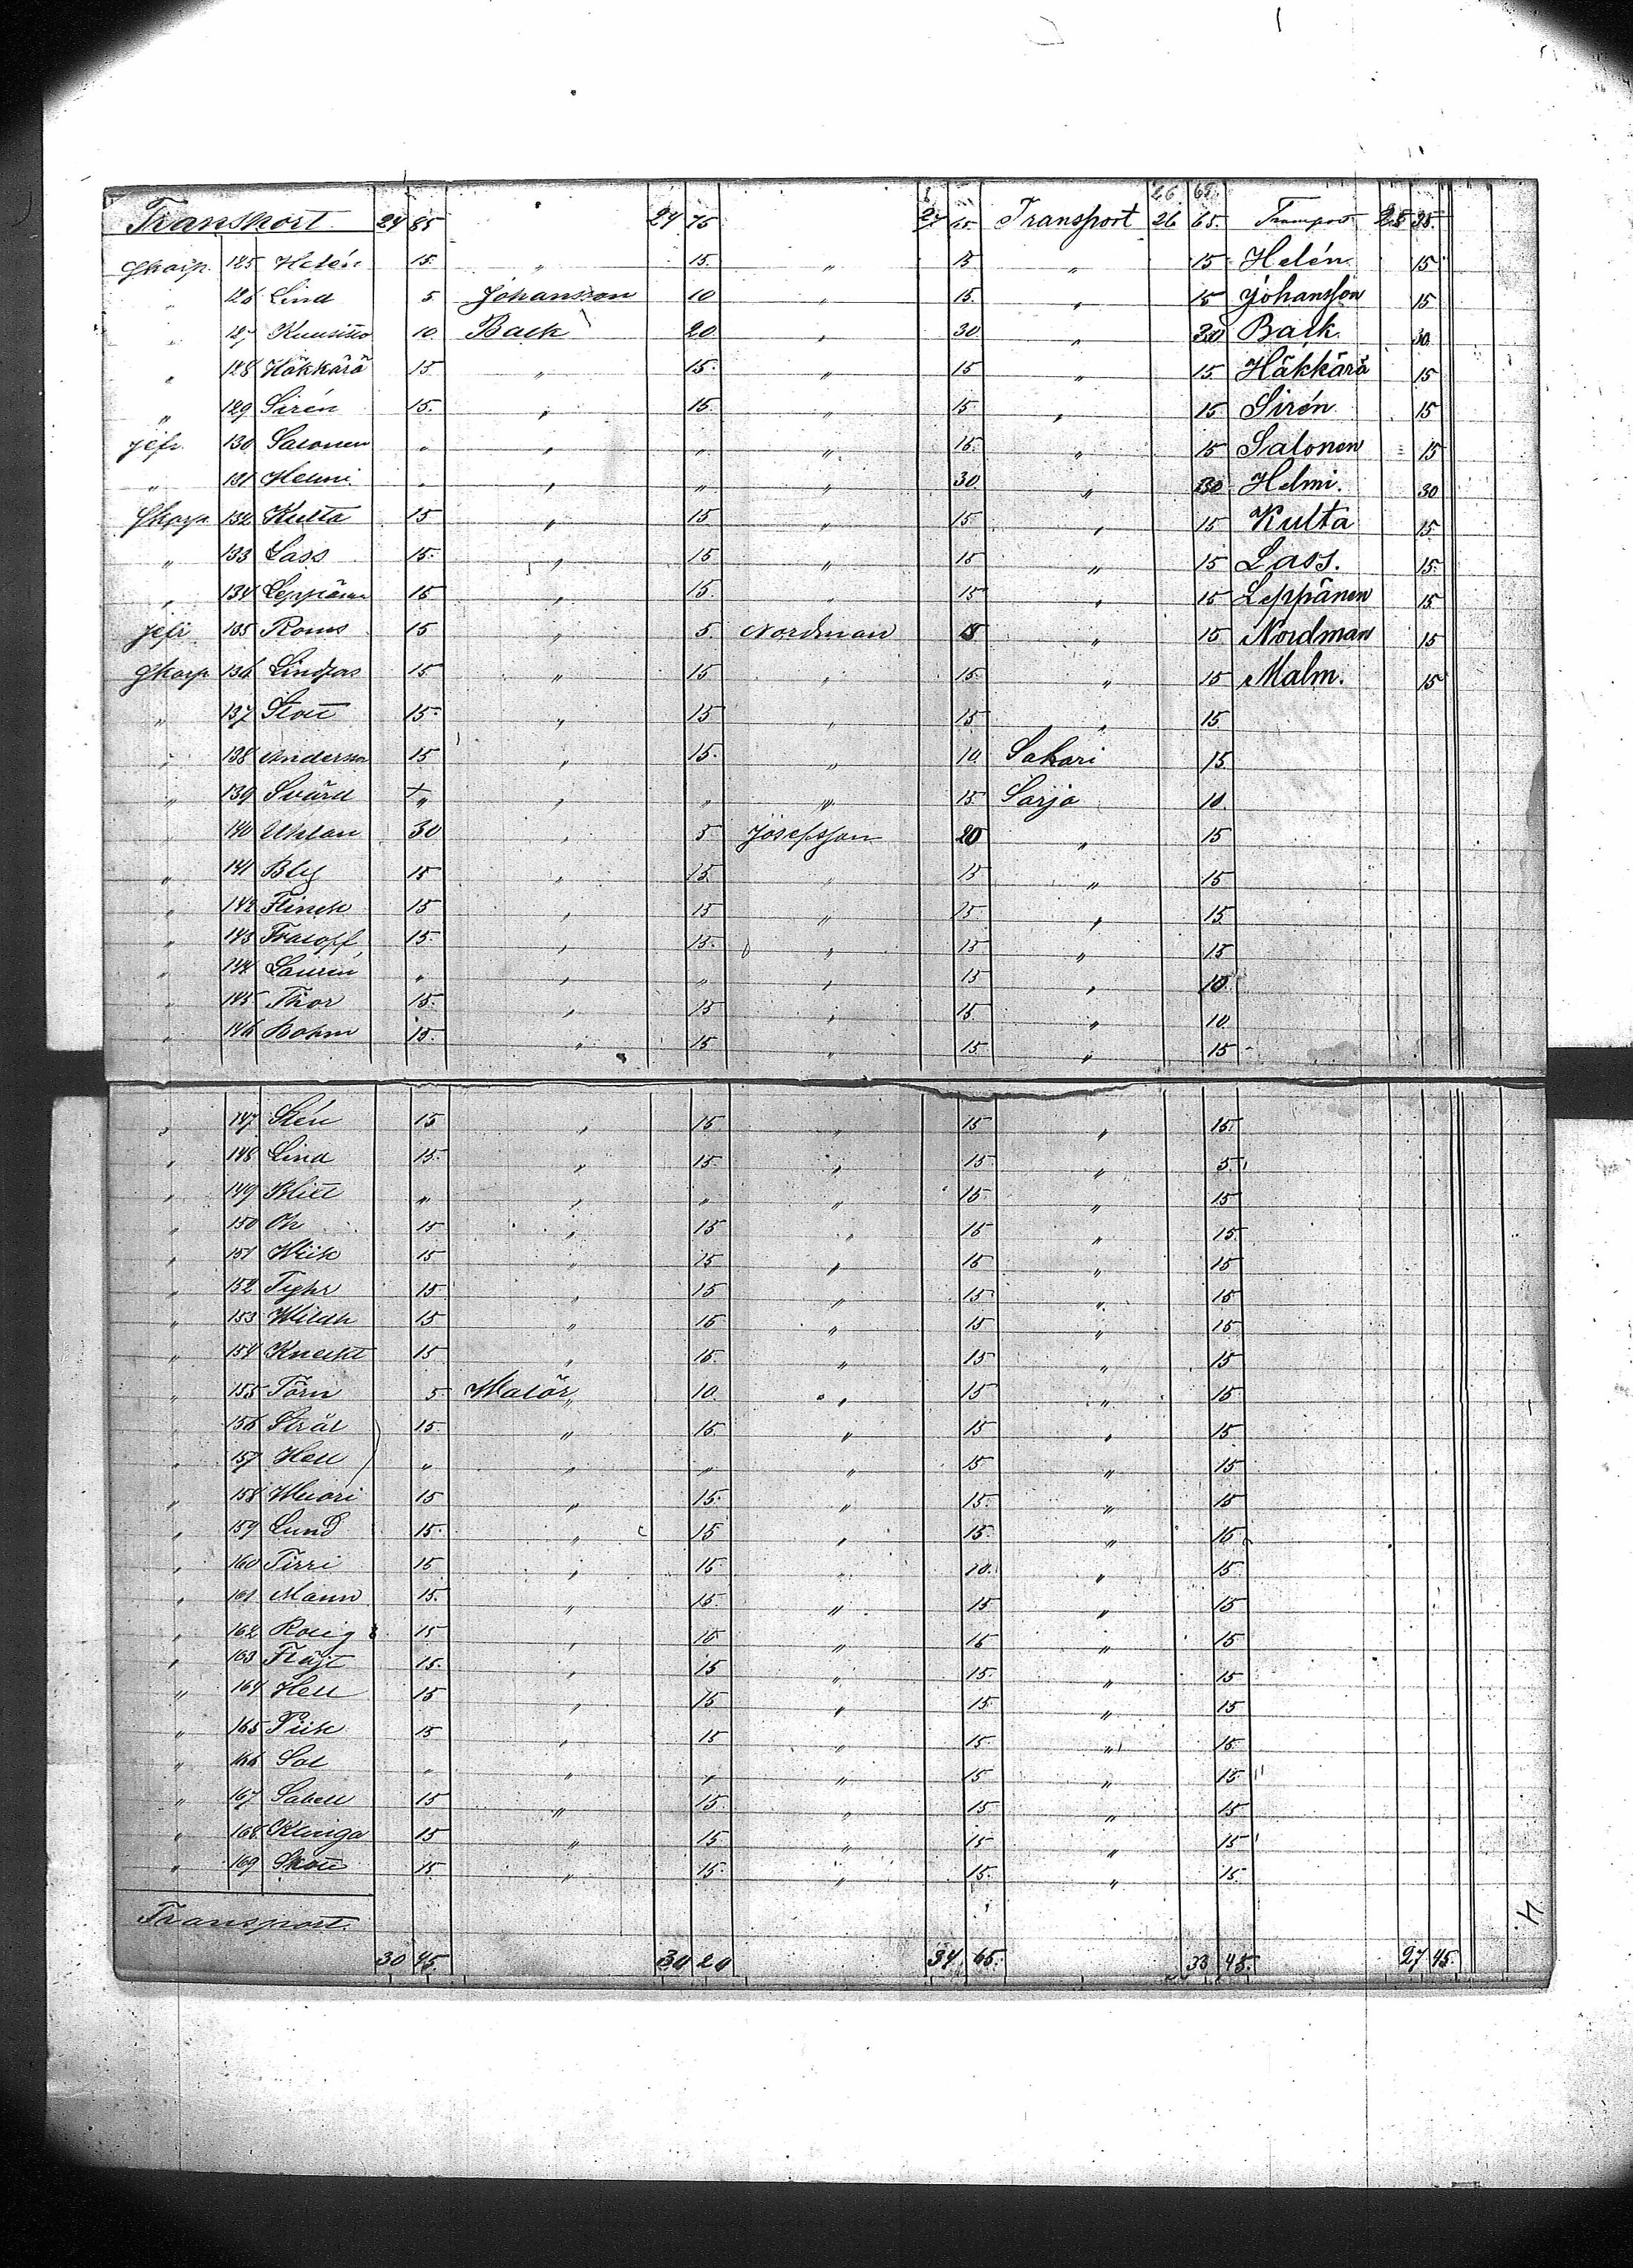 26 65.
Transport. 24 85 24 75 27 65 Transport 26 65. Transport 25 35.
Gkarp. 125 Helén 15. " 15. " 15 " 15 Helén 15
" 126 Lind 5 Johansson 10 " 15. " 15 Johansson 15
" 127 Kuusisto 10 Back 20 " 30 " 30 Back 30
" 128 Häkkärä 15 " 15. " 15 " 15 Häkkärä 15
" 129 Sirén 15. " 15. " 15 " 15 Sirén 15
jefr. 130 Salonen " " " " 15. " 15 Salonen 15
" 131 Helmi " " " " 30. " 30 Helmi. 30
Gkarp. 132 Kulta 15 " 15 " 15 " 15 Kulta 15
" 133 Lass 15. " 15 " 15 " 15 Lass. 15.
" 134 Leppänen 15 " 15. " 15 " 15 Leppänen 15
jefr 135 Roms 15 " 5 Nordman 15 " 15 Nordman 15
Gkarp. 136 Lindfors 15 " 15 " 15. " 15 Malm. 15
" 137 Stolt 15. " 15 " 15 " 15
" 138 Andersson 15 " 15. " 10. Sakari 15
" 139 Svärd " " " " 15 Sarja 10.
" 140 Uhlan 30 " 5 Josefsson 20 " 15
" 141 Bly 15 " 15. " 15 " 15
" 142 Flinck 15 " 15 " 15 " 15
" 143 Fraloff 15. " 15. " 15 " 15
" 144 Laurén " " " " 15 " 10.
" 145 Thor 15. " 15 " 15 " 10.
" 146 Bohm 15. " 15 " 15 " 15
" 147 Stén 15 " 15 " 15 " 15.
" 148 Lind 15. " 15. " 15 " 5.
" 149 Blixt " " " " 15 " 15
" 150 Oh 15 " 15 " 15 " 15.
" 151 Wiik 15 " 15 " 15 " 15
" 152 Tyhr 15 " 15 " 15 " 15
" 153 Wildh 15 " 15 " 15 " 15
" 154 Knecht 15 " 15. " 15 " 15
" 155 Törn 5 Malör " 10. " 15 " 15
" 156 Strål 15. " 15. " 15 " 15
" 157 Hell " " " " 15 " 15
" 158 Wuori 15 " 15. " 15. " 15
" 159 Lund 15. " 15 " 15. " 15
" 160 Tirri 15 " 15. " 10. " 15
" 161 Mann 15. " 15. " 15 " 15
" 162 Rolig 15 " 15 " 15 " 15
" 163 Fläjt 15. " 15 " 15. " 15
" 164 Hell 15 " 15 " 15. " 15
" 165 Piik 15 " 15 " 15. " 15
" 166 Sol " " " " 15 " 15
" 167 Sabell 15 " 15. " 15 " 15
" 168 Klinga 15 " 15 " 15 " 15
" 169 Skott 15 " 15. " 15. " 15
Transport.
30 45. 30 20 34 65. 33 45. 27 45.